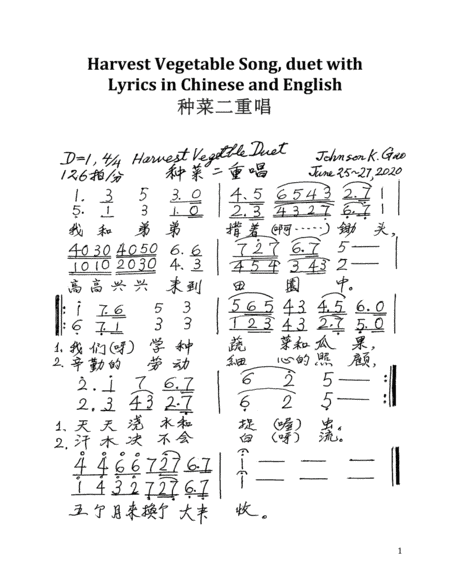 Harvest Vegetable Song, duet with
Lyrics in Chinese and English
种菜二重唱
D=1, 4/4 Harvest Vegetble Duet Johnson K. Gao
126拍/分 种菜二重唱 June 25~27, 2020
1. 3 5 3. 0 | 4. 5 6543 2.7 1 |
5. 1 3 1. 0 | 2.3 4327 6.7 1 |
我和弟弟 揹着(啊·····)锄头,
4030 4050 6. 6 | 727 6.7 5 — |
1010 2030 4. 3 | 454 343 2 — |
高高兴兴 来到 田园中。
1 7.6 5 3 | 565 43 4.5 6.0 |
6 7.1 3 3 | 123 43 2.7 5.0 |
1. 我们(呀)学种 蔬菜和瓜果,
2. 辛勤的劳动 细心的照顾,
2. 1 7 6.7 | 6 2 5 — :
2. 3 43 2.7 | 6 2 5 — :
1. 天天浇水和 捉(喔)虫。
2. 汗水决不会 白(呀)流。
4 4 6 6 727 6.7 | 1 — — —
1 4 3 2 727 6.7 | 1 — — —
五个月来换了大丰收。
1